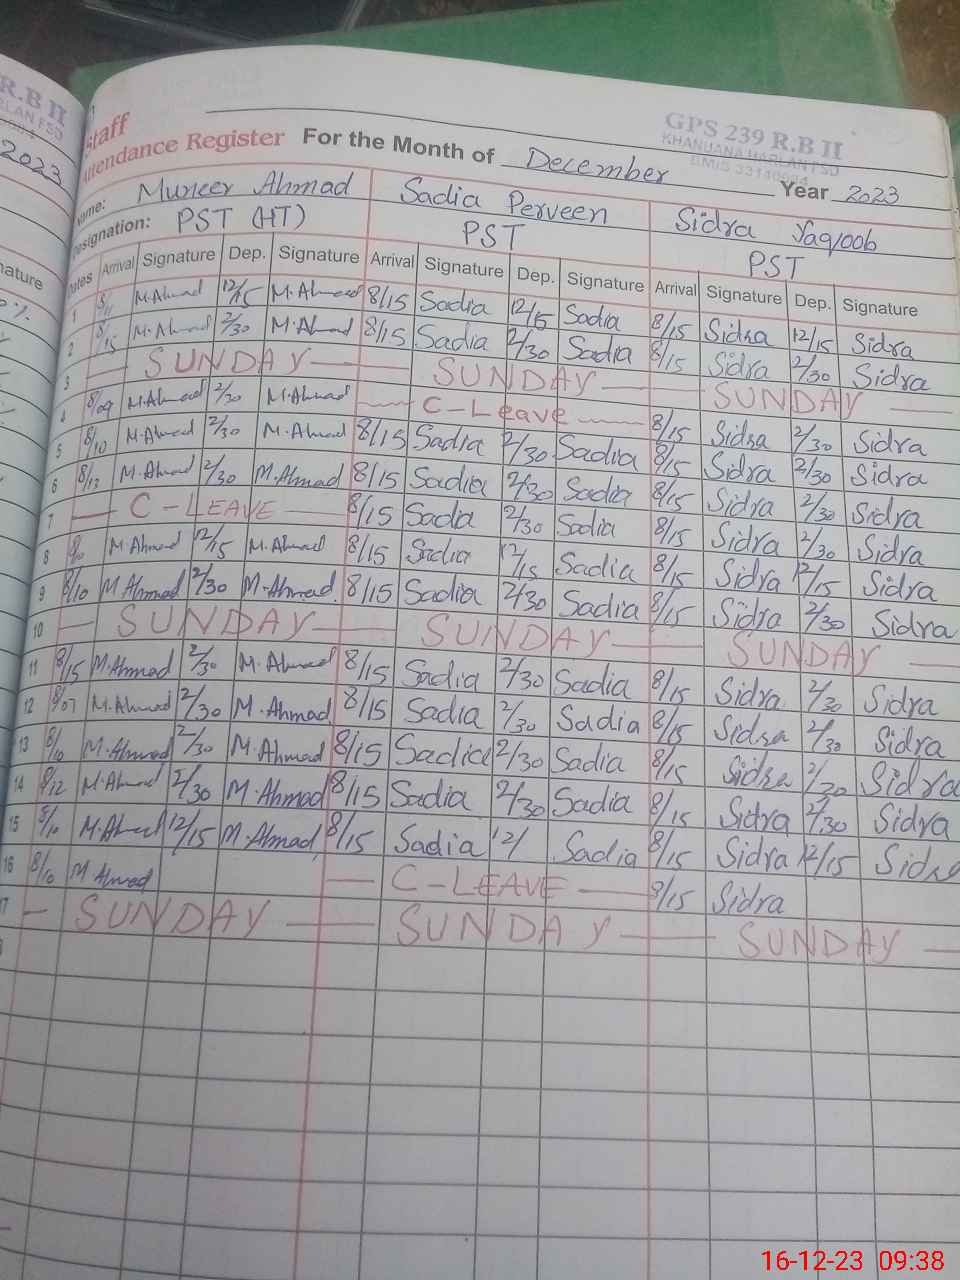 R.B II
2023
GPS 239 R.B II
KHANUANA HARLAN FSD
Staff
Attendance Register For the Month of December Year 2023
Name: Muneer Ahmad Sadia Perveen Sidra Yaqoob
Designation: PST (HT) PST PST
Dates Arrival Signature Dep. Signature Arrival Signature Dep. Signature Arrival Signature Dep. Signature
1 8/11 M.Ahmad 12/15 M.Ahmad 8/15 Sadia 12/15 Sadia 8/15 Sidra 12/15 Sidra
2 8/15 M.Ahmad 2/30 M.Ahmad 8/15 Sadia 2/30 Sadia 8/15 Sidra 2/30 Sidra
3 SUNDAY SUNDAY SUNDAY
4 8/09 M.Ahmad 2/30 M.Ahmad C-Leave 8/15 Sidra 2/30 Sidra
5 8/10 M.Ahmad 2/30 M.Ahmad 8/15 Sadia 2/30 Sadia 8/15 Sidra 2/30 Sidra
6 8/13 M.Ahmad 2/30 M.Ahmad 8/15 Sadia 2/30 Sadia 8/15 Sidra 2/30 Sidra
7 C-LEAVE 8/15 Sadia 2/30 Sadia 8/15 Sidra 2/30 Sidra
8 M.Ahmad 12/15 M.Ahmad 8/15 Sadia 12/15 Sadia 8/15 Sidra 12/15 Sidra
9 8/10 M.Ahmad 2/30 M.Ahmad 8/15 Sadia 2/30 Sadia 8/15 Sidra 2/30 Sidra
10 SUNDAY SUNDAY SUNDAY
11 8/15 M.Ahmad 2/30 M.Ahmad 8/15 Sadia 2/30 Sadia 8/15 Sidra 2/30 Sidra
12 8/07 M.Ahmad 2/30 M.Ahmad 8/15 Sadia 2/30 Sadia 8/15 Sidra 2/30 Sidra
13 8/10 M.Ahmad 2/30 M.Ahmad 8/15 Sadia 2/30 Sadia 8/15 Sidra 2/30 Sidra
14 8/12 M.Ahmad 2/30 M.Ahmad 8/15 Sadia 2/30 Sadia 8/15 Sidra 2/30 Sidra
15 8/10 M.Ahmad 12/15 M.Ahmad 8/15 Sadia 12/ Sadia 8/15 Sidra 12/15 Sidra
16 8/10 M Ahmad C-LEAVE 8/15 Sidra
17 SUNDAY SUNDAY SUNDAY
16-12-23 09:38